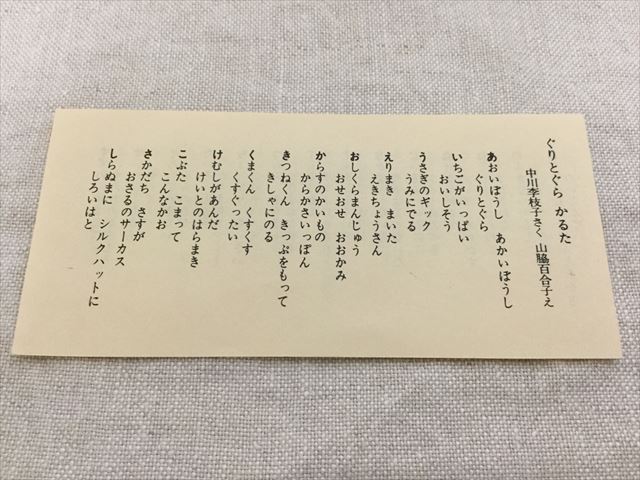 ぐりとぐら かるた
中川李枝子さく 山脇百合子え
あおいぼうし あかいぼうし
ぐりとぐら
いちごがいっぱい
おいしそう
うさぎのギック
うみにでる
えりまき まいた
えきちょうさん
おしくらまんじゅう
おせおせ おおかみ
からすのかいもの
からかさいっぽん
きつねくん きっぷをもって
きしゃにのる
くまくん くすくす
くすぐったい
けむしがあんだ
けいとのはらまき
こぶた こまって
こんなかお
さかだち さすが
おさるのサーカス
しらぬまに シルクハットに
しろいはと